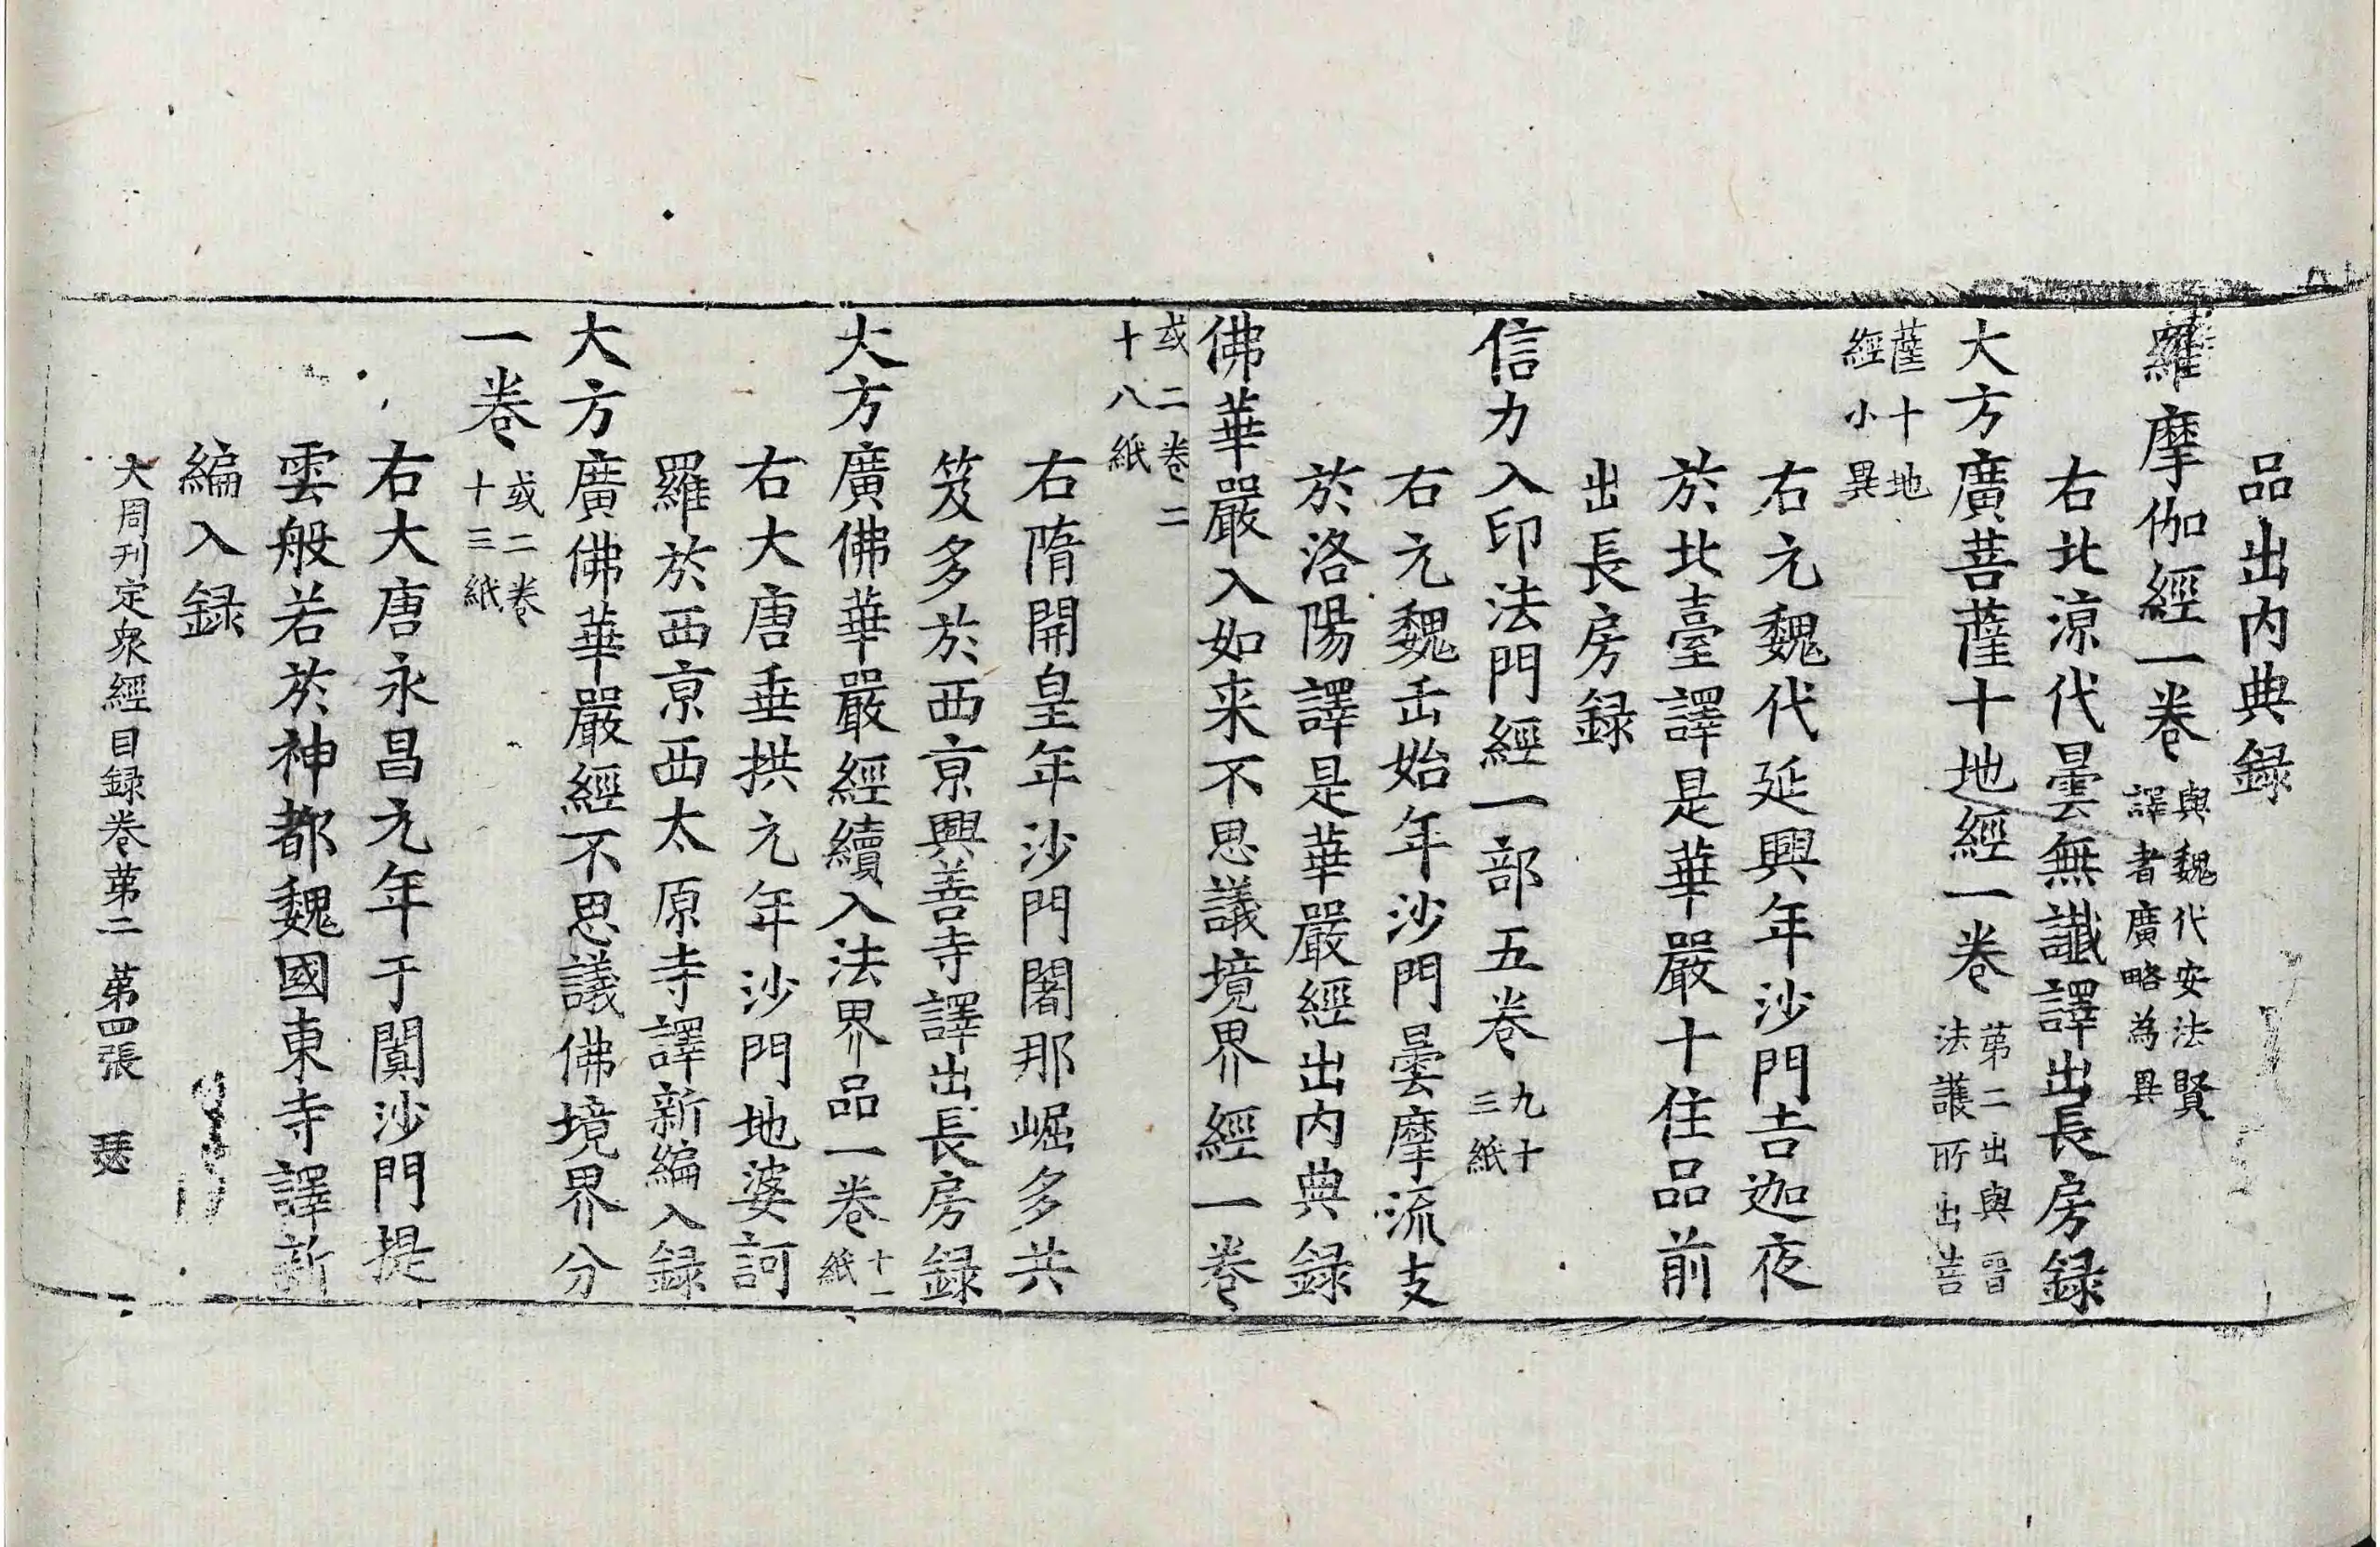 品出內典録
羅摩伽經一卷與魏代安法賢譯者廣略為異
右北涼代曇無讖譯出長房録
大方廣菩薩十地經一卷第二出與晉法護所出菩
薩十地經小異
右元魏代延興年沙門吉迦夜
於北臺譯是華嚴十住品前
出長房録
信力入印法門經一部五卷九十三紙
右元魏正始年沙門曇摩流支
於洛陽譯是華嚴經出內典録
佛華嚴入如来不思議境界經一卷
或二卷二十八紙
右隋開皇年沙門闍那崛多共
笈多於西京興善寺譯出長房録
大方廣佛華嚴經續入法界品一卷十一紙
右大唐垂拱元年沙門地婆訶
羅於西京西太原寺譯新編入録
大方廣佛華嚴經不思議佛境界分
一卷或二卷十三紙
右大唐永昌元年于闐沙門提
雲般若於神都魏國東寺譯新
編入録
大周刊定衆經目録卷苐二 苐四張 瑟